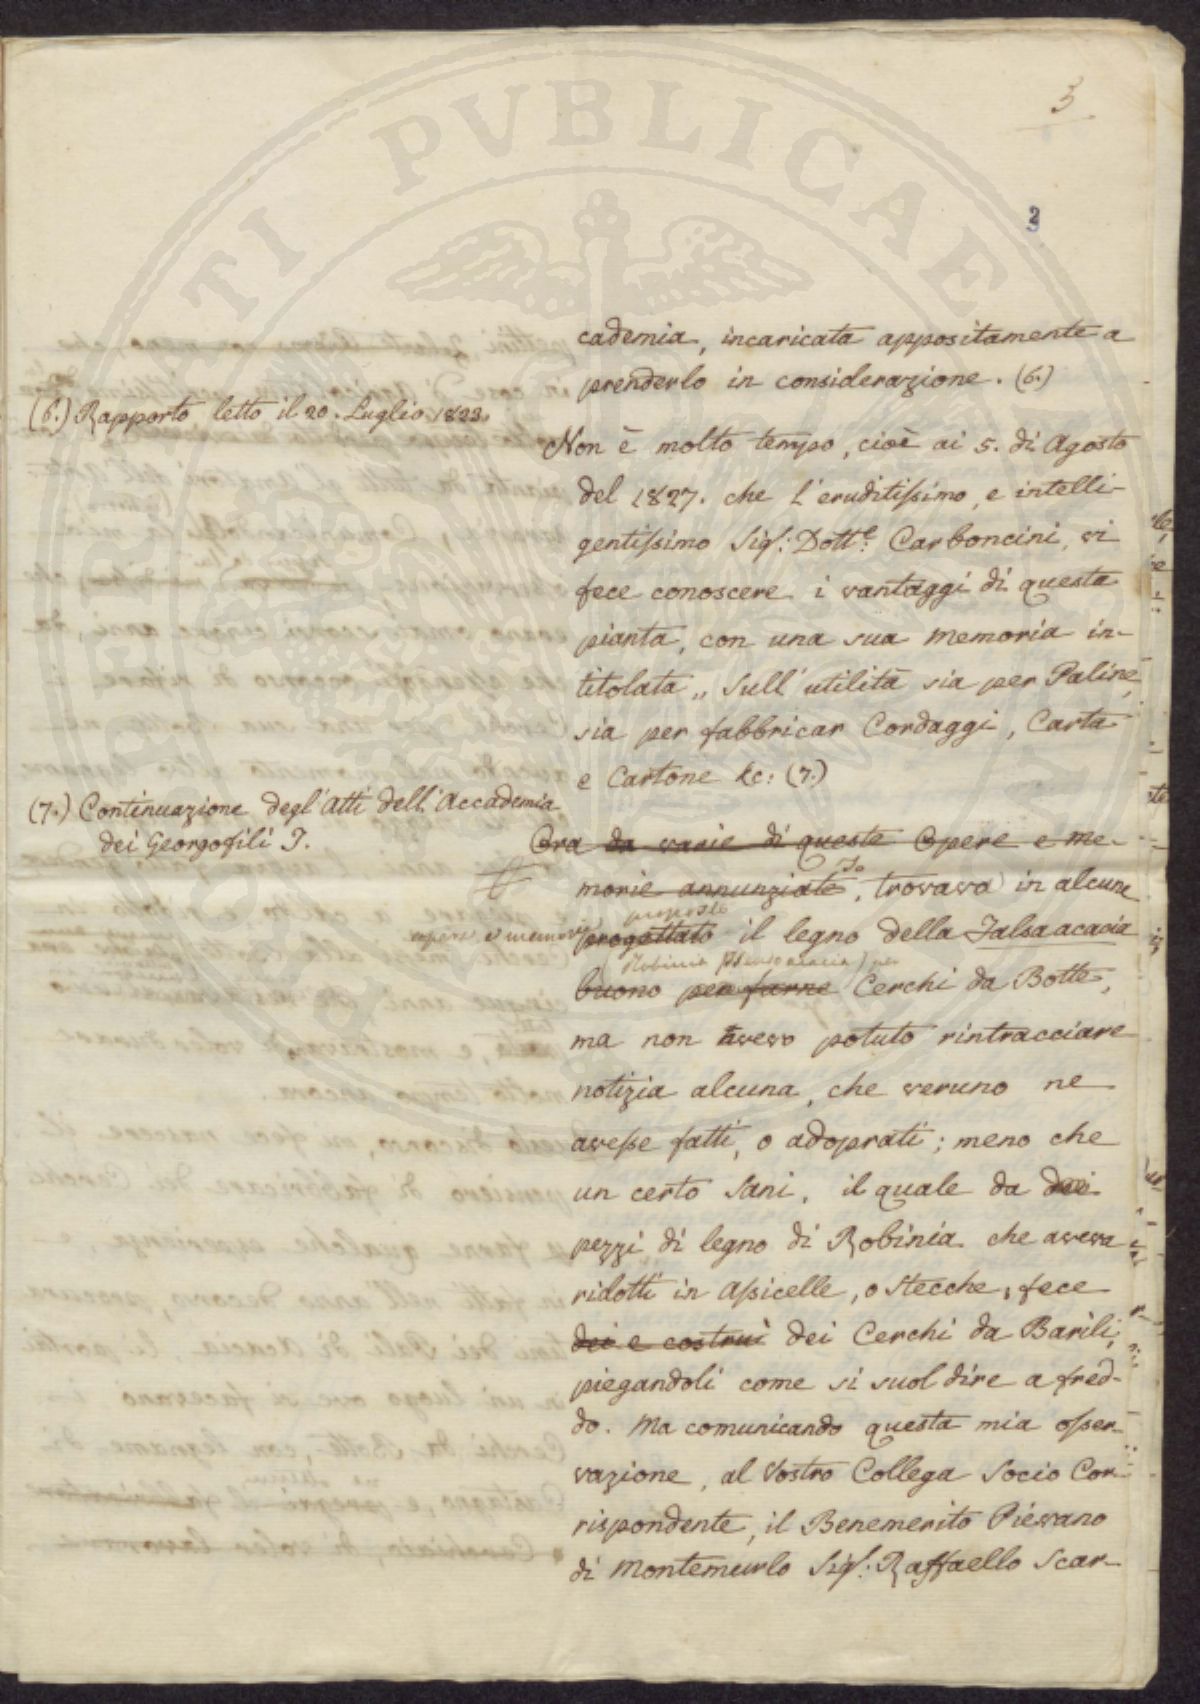 3
3
cademia, incaricata appositamente a
prenderlo in considerazione. (6.)
(6.) Rapporto letto il 20. Luglio 1823.
Non è molto tempo, cioè ai 5. di Agosto
del 1827. che l'eruditissimo, e intelli-
gentissimo Sig.: Dott.e: Carboncini, vi
fece conoscere i vantaggi di questa
pianta, con una sua memoria in-
titolata „ Sull'utilità sia per Paline,
sia per fabbricar Cordaggi, Carta
e Cartone &c: (7.)
(7.) Continuazione degl'Atti dell'Accademia
dei Georgofili T.
Ora da varie di queste Opere e me-
morie annunziate, Io trovava in alcune
opere e memorie proposto
progettato il legno della Falsa acacia
(Robinia pseudo acacia) per
buono per farne Cerchi da Botte,
ma non avevo potuto rintracciare
notizia alcuna, che veruno ne
avesse fatti, o adoprati; meno che
un certo Sani, il quale da dei
pezzi di legno di Robinia che aveva
ridotti in Assicelle, o Stecche, fece
dei e costruì dei Cerchi da Barili,
piegandoli come si suol dire a fred-
do. Ma comunicando questa mia osser-
vazione, al Vostro Collega Socio Cor-
rispondente, il Benemerito Piévano
di Montemurlo Sig.: Raffaello Scar-
PUBLICAE